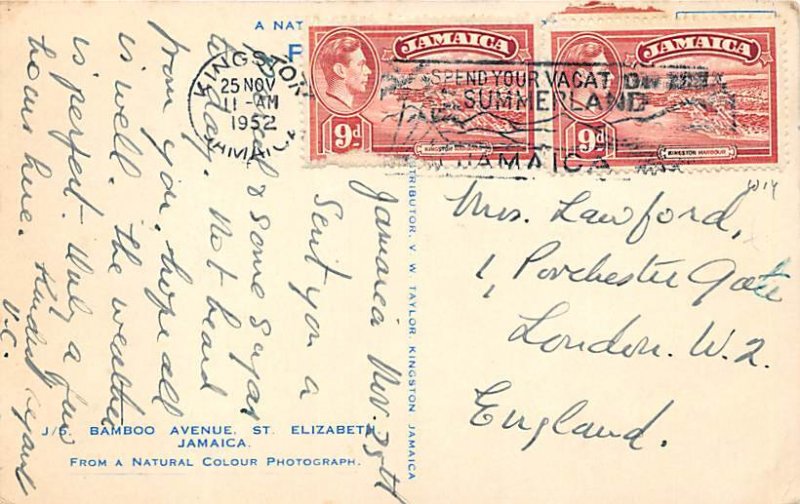 A NAT
P
KINGSTON
25 NOV
11-AM
1952
JAMAICA
JAMAICA
9d
KINGSTON HARBOUR
JAMAICA
9d
KINGSTON HARBOUR
SPEND YOUR VACATION IN
SUMMERLAND
JAMAICA
Jamaica Nov. 25th
Sent you a
& some sugar
to day. Not heard
from you, hope all
is well. The weather
is perfect. Only a few
here. Kindest regards
V.C.
DISTRIBUTOR, V. W. TAYLOR, KINGSTON JAMAICA
Mrs. Lawford,
1, Porchester Gate
London. W.2.
England.
J/5. BAMBOO AVENUE, ST. ELIZABETH,
JAMAICA.
FROM A NATURAL COLOUR PHOTOGRAPH.